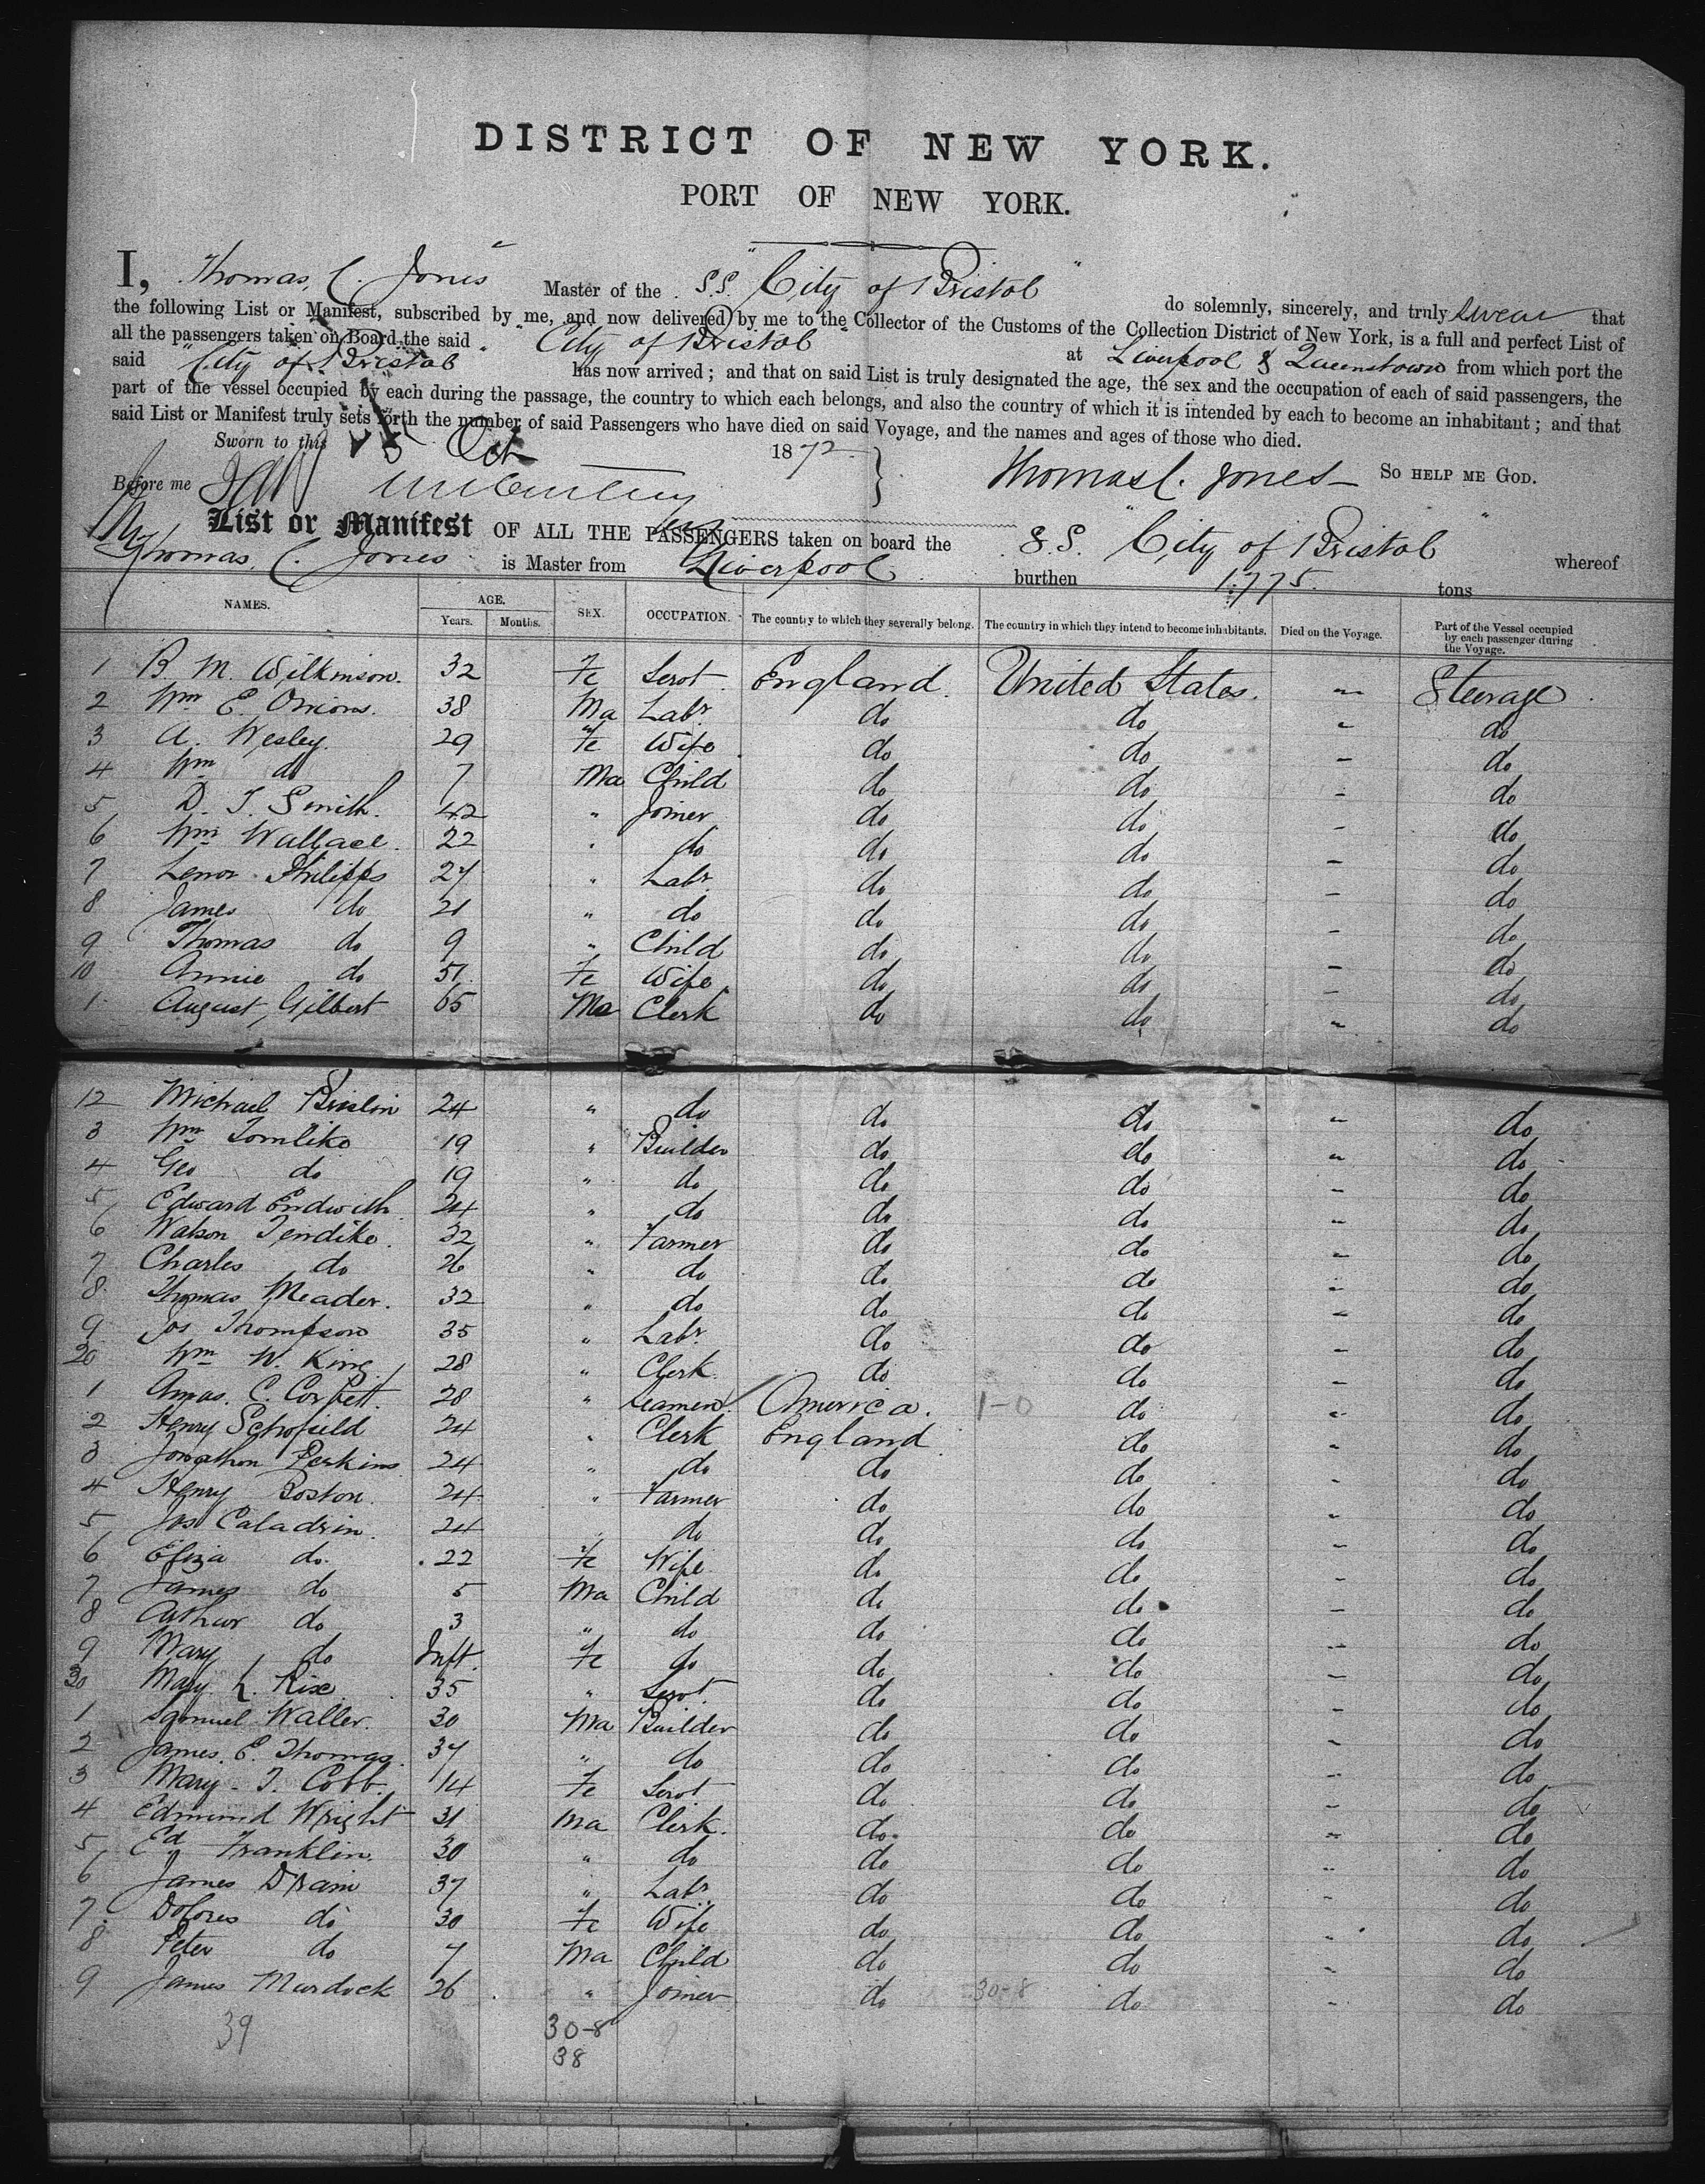 DISTRICT OF NEW YORK.
PORT OF NEW YORK.
I, Thomas, C. Jones Master of the S.S. "City of Bristol" do solemnly, sincerely, and truly swear that
the following List or Manifest, subscribed by me, and now delivered by me to the Collector of the Customs of the Collection District of New York, is a full and perfect List of
all the passengers taken on Board the said "City of Bristol" at Liverpool & Queenstown from which port the
said "City of Bristol" has now arrived; and that on said List is truly designated the age, the sex and the occupation of each of said passengers, the
part of the vessel occupied by each during the passage, the country to which each belongs, and also the country of which it is intended by each to become an inhabitant; and that
said List or Manifest truly sets forth the number of said Passengers who have died on said Voyage, and the names and ages of those who died.
Sworn to this Oct 1872 Thomas C. Jones So HELP ME GOD.
Before me
List or Manifest OF ALL THE PASSENGERS taken on board the S.S. "City of Bristol" whereof
Thomas, C. Jones is Master from Liverpool burthen 1.775. tons
NAMES. AGE. SEX. OCCUPATION. The country to which they severally belong. The country in which they intend to become inhabitants. Died on the Voyage. Part of the Vessel occupied by each passenger during the Voyage.
Years. Months.
1 B. M. Wilkinson. 32 Fe Servt. England. United States. " Steerage
2 Wm E. Onions. 38 Ma Labr. do do " do
3 A. Wesley. 29 Fe Wife do do - do
4 Wm do 7 Ma Child do do - do
5 D. T. Smith. 42 " Joiner do do - do
6 Wm Wallace. 22 " do do do - do
7 Philipps 27 " Labr. do do - do
8 James do 21 " do do do - do
9 Thomas do 9 " Child do do - do
10 Annie do 51. Fe Wife do do - do
1. August, Gilbert 65 Ma Clerk do do " do
12 Michael Brislin 24 " do do do " do
3 Wm 19 " Builder do do " do
4 Geo do 19 " do do do - do
5 Edward 24 " do do do " do
6 Watson 32 " Farmer do do " do
7 Charles do 26 " do do do " do
8. Thomas Meader. 32 " do do do - do
9 Jos Thompson 35 " Labr. do do - do
20 Wm W. King 28 " Clerk. do do - do
1 Amas. C. Corbett. 28 " Seamen. America. 1-0 do " do
2 Henry Schofield 24 " Clerk England do " do
3 Jonathon Perkins 24 " do do do - do
4 Henry Boston. 24 " Farmer do do " do
5 Jos Caladrin. 24 " do do do - do
6 Eliza do. 22 Fe Wife do do - do
7 James do 5 Ma Child do do - do
8 Arthur do 3 " do do do - do
9 Mary do Inft. Fe do do do - do
30 Mary L. Rix 35 " Servt. do do - do
1 Samuel Waller. 30 Ma Builder do do - do
2 James. E. Thomas 37 " do do do - do
3 Mary. T. Cobb. 14 Fe Servt do do - do
4 Edmund Wright 31 Ma Clerk. do. do " do
5 Ed Franklin. 30 " do do do " do
6 James Drain 37 " Labr. do do - do
7. Dolores do 30 Fe Wife do do - do
8 Peter do 7 Ma Child do do - do
9 James Murdock 26 " Joiner do 30-8 do - do
39 30-8
38